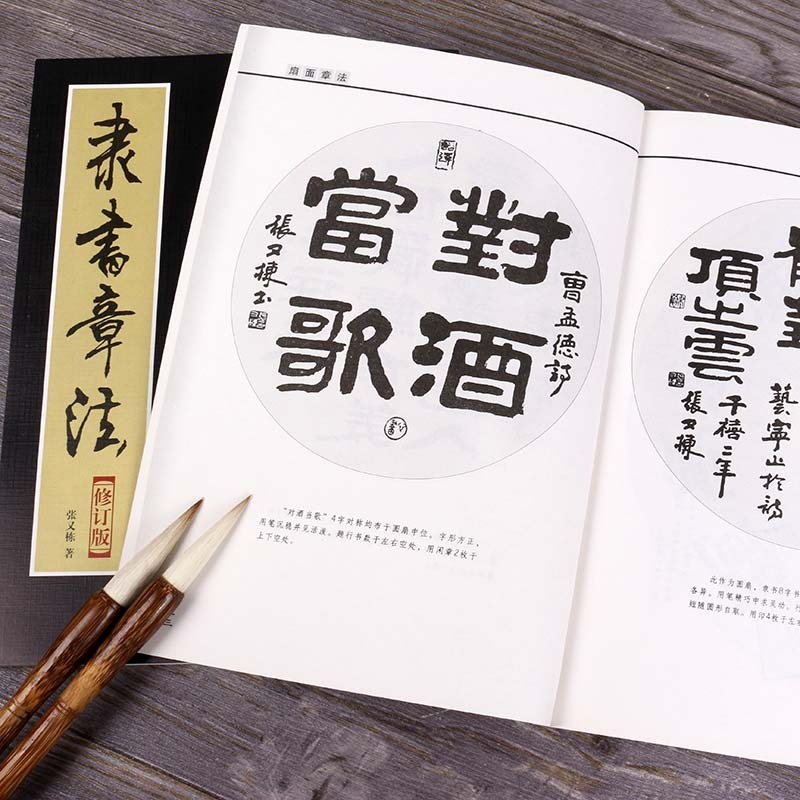 隶書章法
修订版
张又栋 著
扇面章法
對酒
當歌
曹孟德詩
張又棟书
“对酒当歌”4字对称均布于圆扇中位。字形方正，
用笔沉稳并见活泼。题行书款于左右空处，用闲章2枚于
上下空处。
頂之雲
千禧二年
張又棟
此作为圆扇，隶书8字书
各异。用笔精巧中求灵动。行
短随圆形自取。用印4枚于左